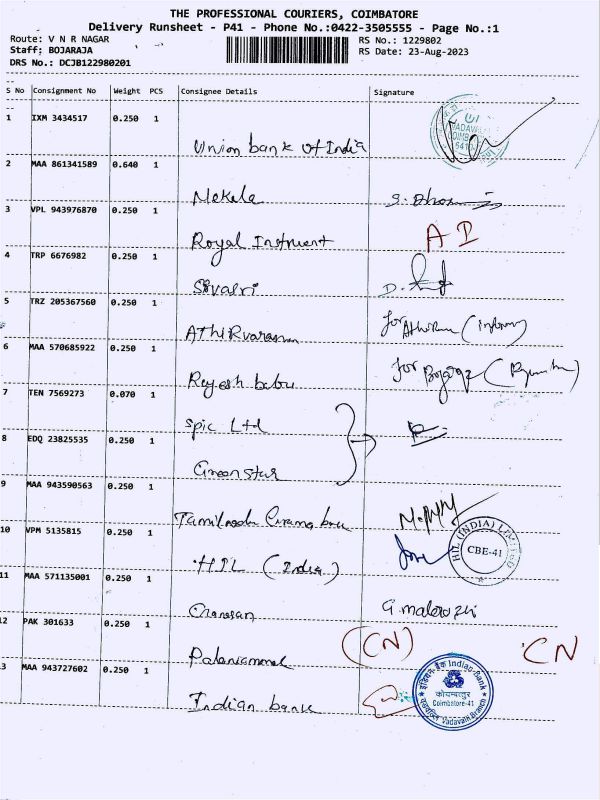 THE PROFESSIONAL COURIERS, COIMBATORE
Delivery Runsheet - P41 - Phone No.:0422-3505555 - Page No.:1
Route: V N R NAGAR
Staff: BOJARAJA
DRS No.: DCJB122980201
RS No.: 1229802
RS Date: 23-Aug-2023
S No Consignment No Weight PCS Consignee Details Signature
1 IXM 3434517 0.250 1
Union bank of India
2 MAA 861341589 0.640 1
Mekala
3 VPL 943976870 0.250 1
Royal A I
4 TRP 6676982 0.250 1
D.
5 TRZ 205367560 0.250 1
for
6 MAA 570685922 0.250 1
Rajesh babu for
7 TEN 7569273 0.070 1
Spic Ltd
8 EDQ 23825535 0.250 1
Green star
9 MAA 943590563 0.250 1
10 VPM 5135815 0.250 1
HIL (India)
HIL (INDIA) LIMITED
CBE-41
11 MAA 571135001 0.250 1
12 PAK 301633 0.250 1
(CN) CN
13 MAA 943727602 0.250 1
Indian bank
इंडियन बैंक Indian Bank
कोयम्बत्तूर
Coimbatore-41
Vadavalli Branch